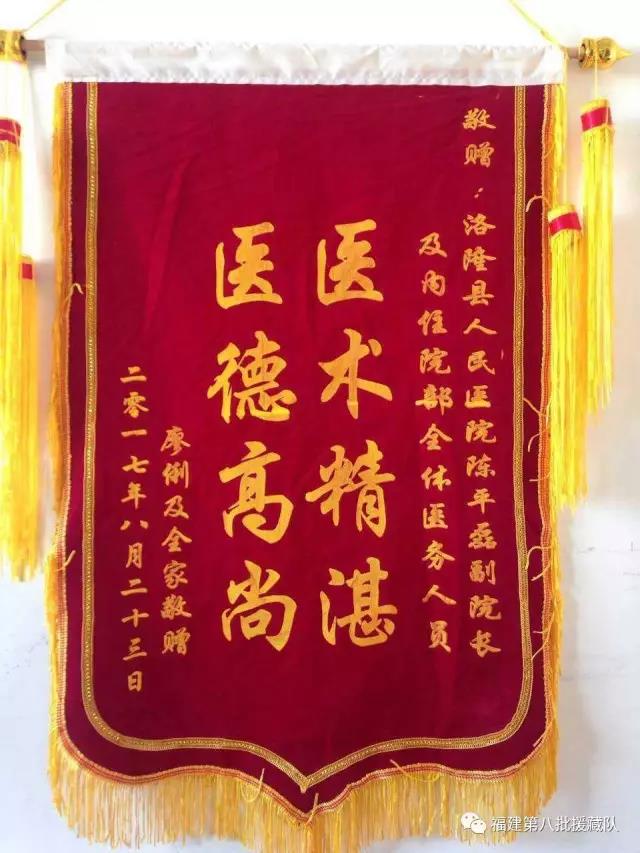 敬赠：洛隆县人民医院陈平磊副院长
及内住院部全体医务人员
医术精湛
医德高尚
廖俐及全家敬赠
二零一七年八月二十三日
福建第八批援藏队